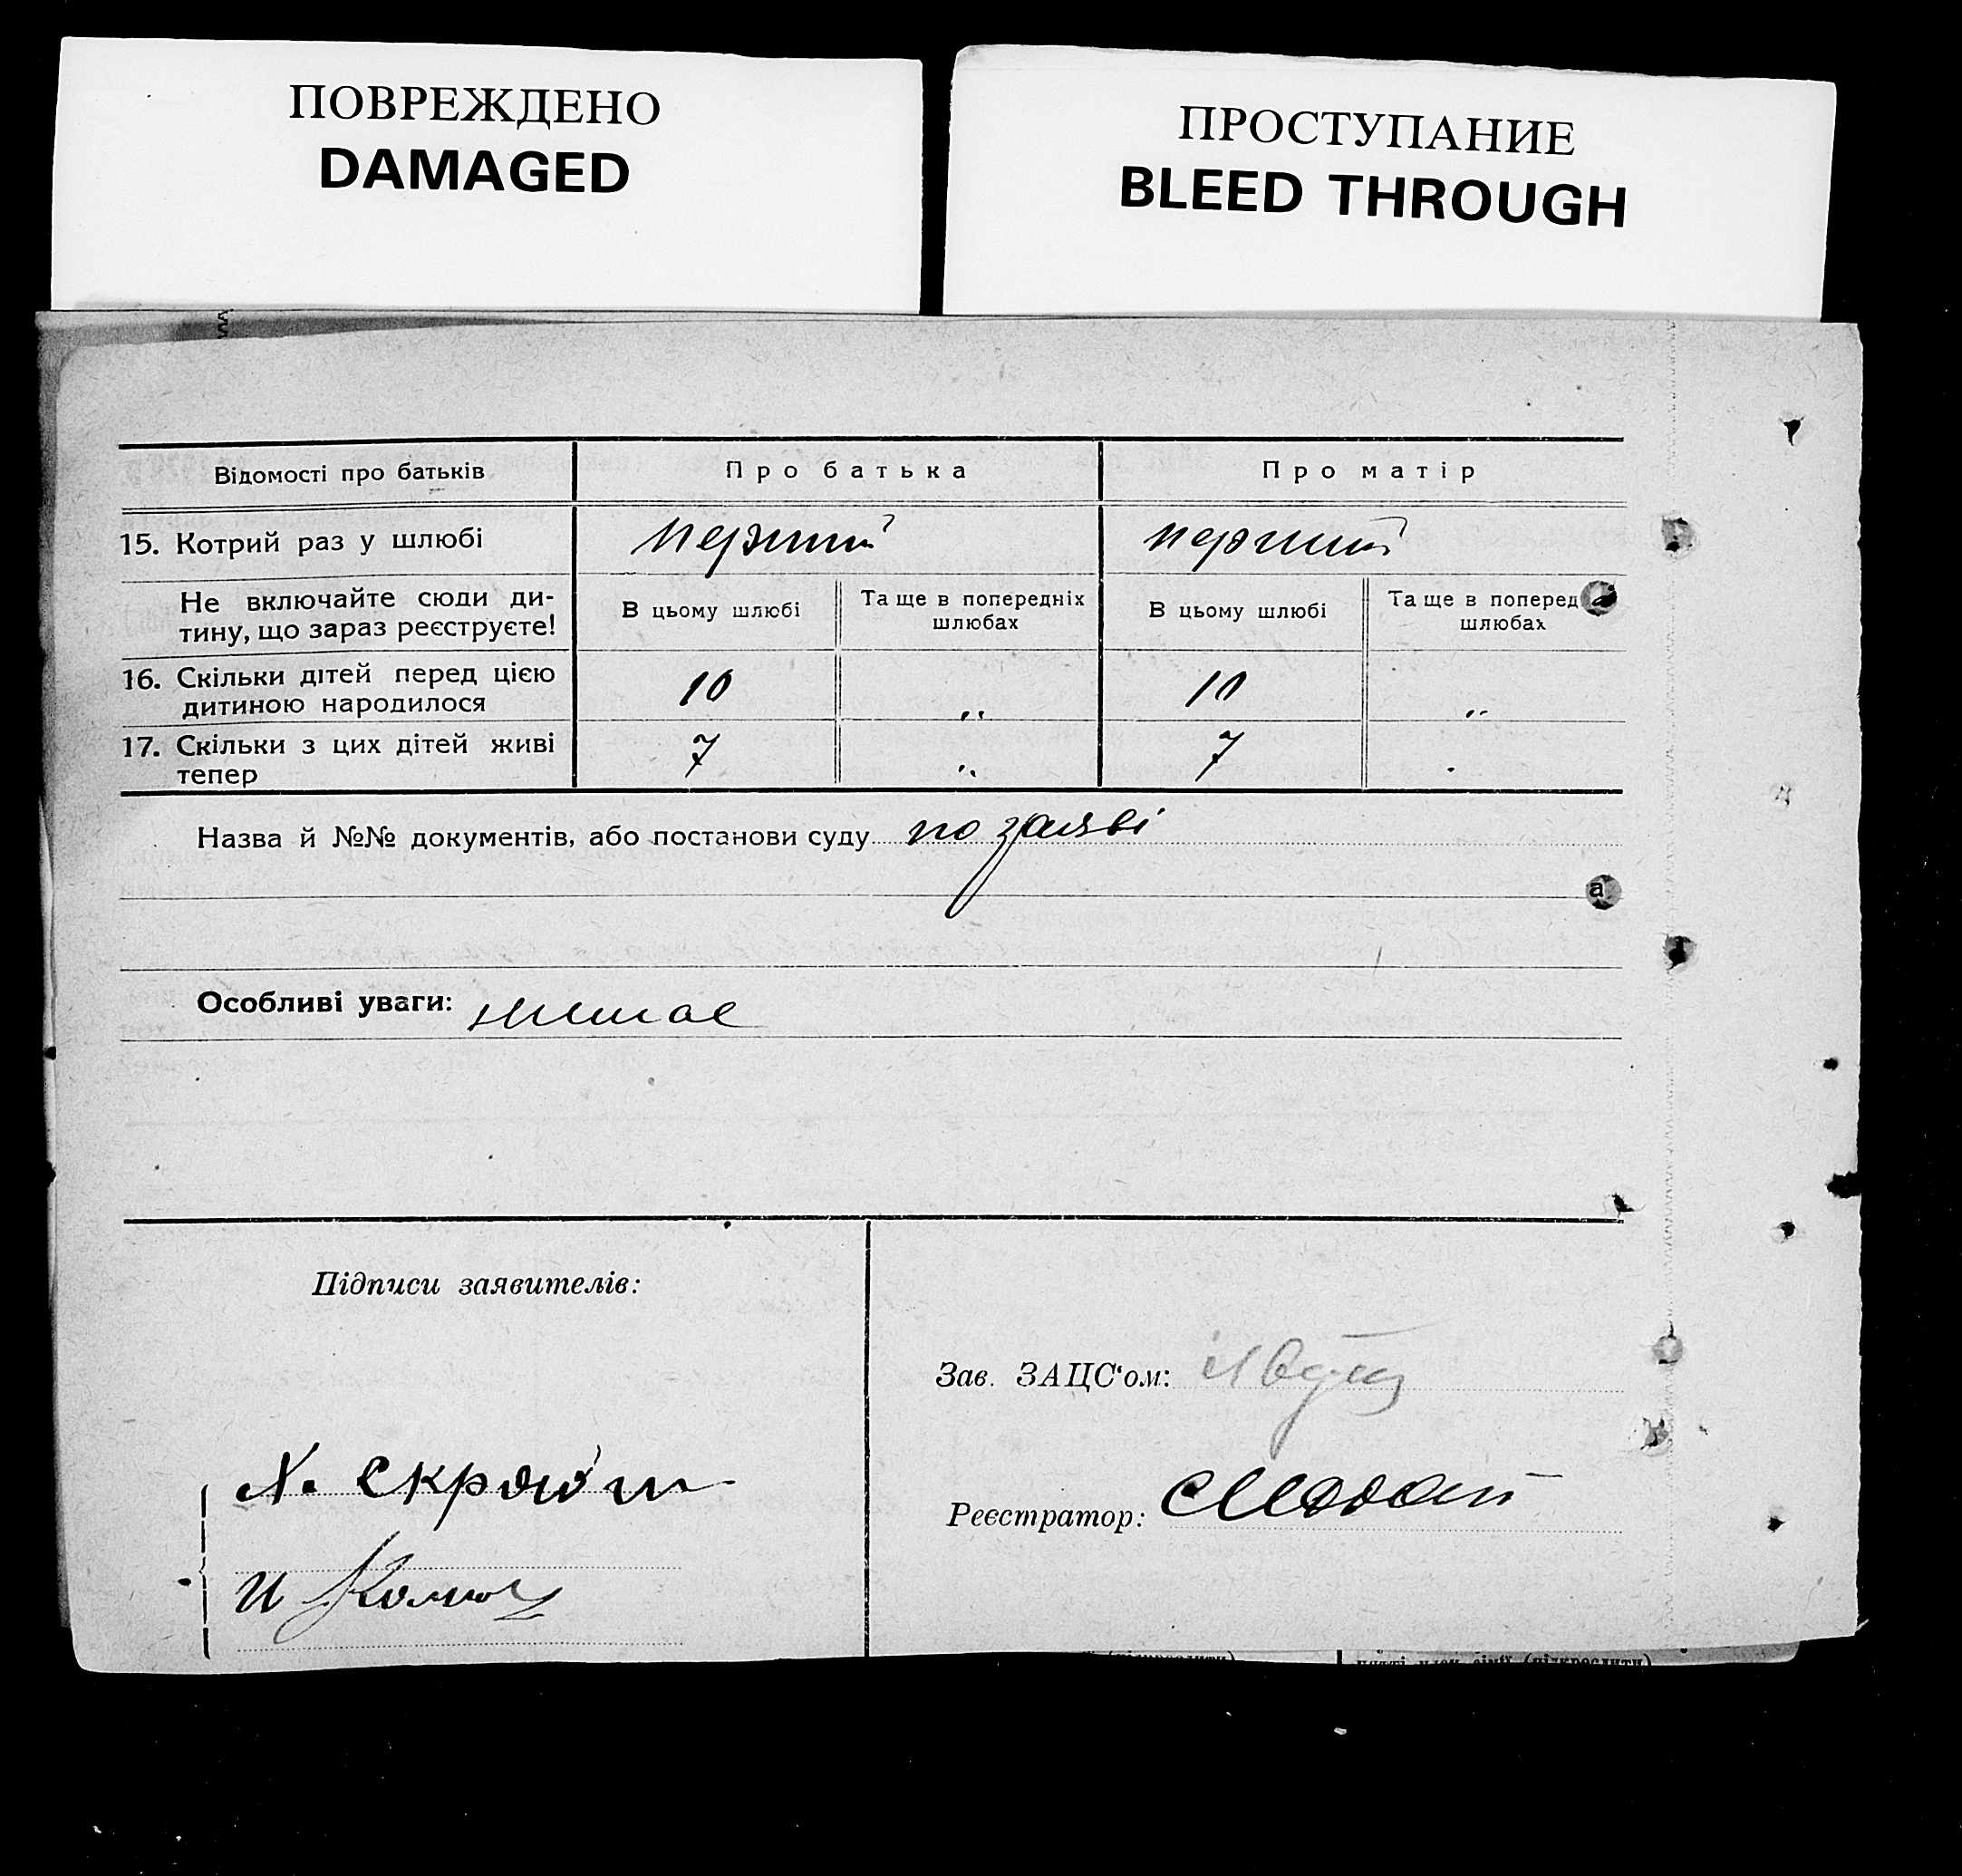 ПОВРЕЖДЕНО
DAMAGED
ПРОСТУПАНИЕ
BLEED THROUGH
Відомості про батьків
Про батька
Про матір
15. Котрий раз у шлюбі
перший
перший
Не включайте сюди ди-
тину, що зараз реєструєте!
В цьому шлюбі
Та ще в попередніх
шлюбах
В цьому шлюбі
Та ще в поперед
шлюбах
16. Скільки дітей перед цією
дитиною народилося
10
„
10
„
17. Скільки з цих дітей живі
тепер
7
„
7
Назва й №№ документів, або постанови суду по заяві
Особливі уваги: немає
Підписи заявителів:
Зав. ЗАЦС‘ом:
Реєстратор: